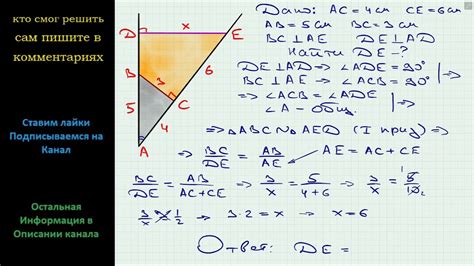 кто смог решить
сам пишите в
комментариях
Ставим лайки
Подписываемся на
Канал
Остальная
Информация в
Описании канала
D x E
B 3 6
5 C
4
A
Дано: AC = 4см CE = 6см
AB = 5см BC = 3см
BC ⊥ AE DE ⊥ AD
Найти DE - ?
DE ⊥ AD ⇒ ∠ADE = 90°
BC ⊥ AE ⇒ ∠ACB = 90° ⇒
⇒ ∠ACB = ∠ADE
∠A - общ. ⇒
⇒ △ABC ∾ △AED (I приз) ⇒
⇒ BC/DE = AB/AE AE = AC + CE
BC/DE = AB/AC+CE ⇒ 3/x = 5/4+6 ⇒ 3/x = 5/10 1 2
3/x = 1/2 ⇒ 3·2 = x ⇒ x = 6
Ответ: DE =